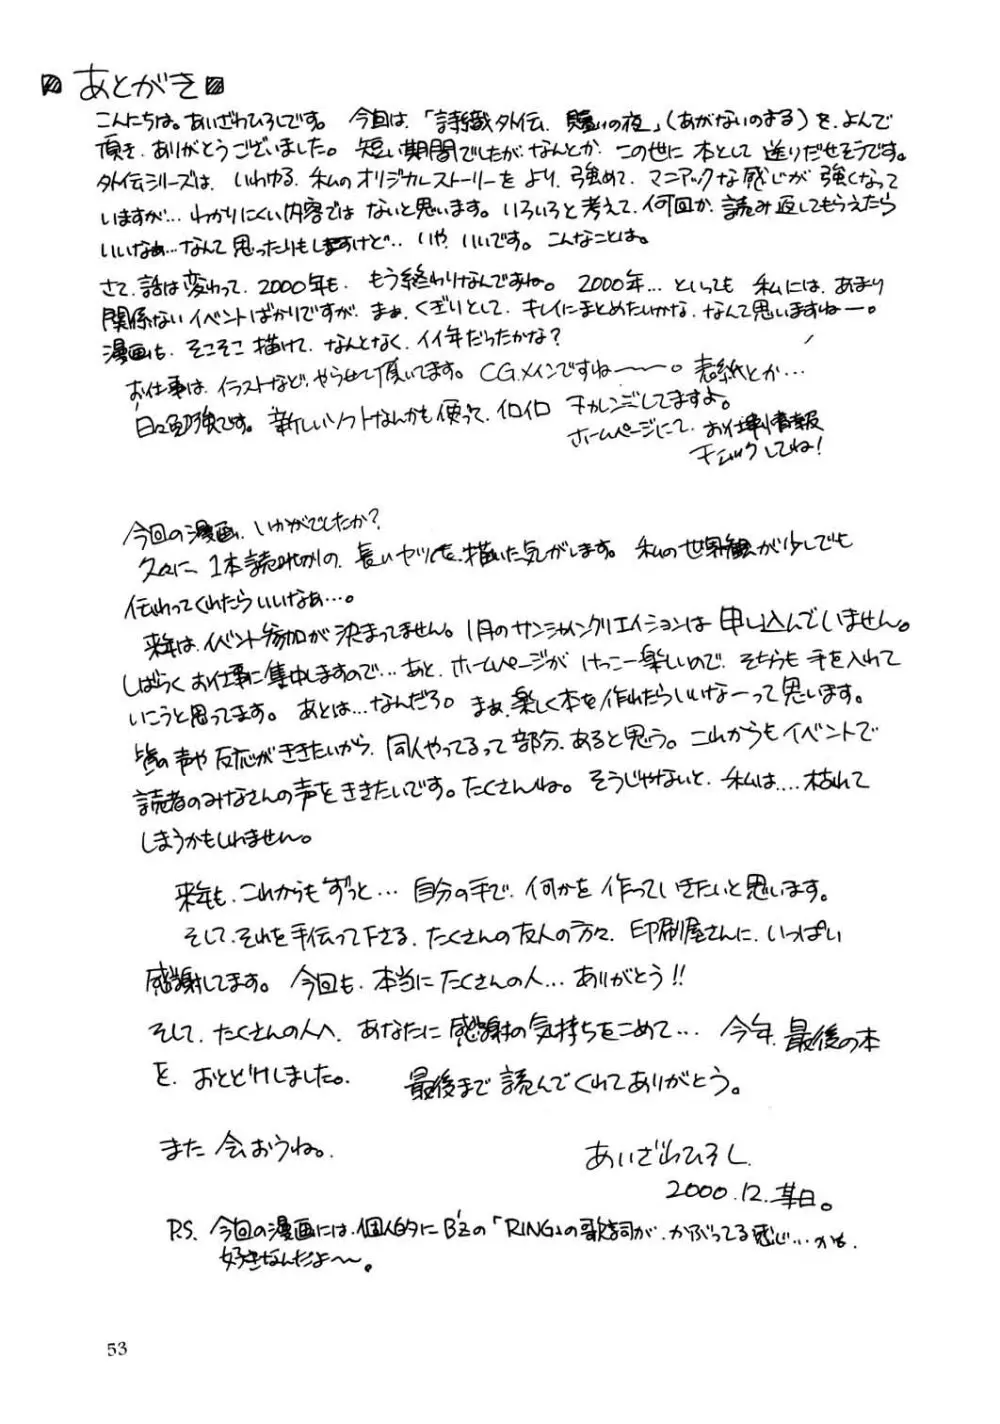 あとがき
こんにちは。あいざわひろしです。今回は、「詩織外伝、贖いの夜」(あがないのよる)を、よんで
頂き、ありがとうございました。短い期間でしたが、なんとか、この世に本として送りだせそうです。
外伝シリーズは、いわゆる、私のオリジナルストーリーをより、強めて、マニアックな感じが強くなって
いますが…わかりにくい内容ではないと思います。いろいろと考えて、何回か、読み返してもらえたら
いいなぁ…なんて思ったりもしますけど…いや、いいです。こんなことは。
さて、話は変わって、2000年も、もう終わりなんですね。2000年…といっても私には、あまり
関係ないイベントばかりですが、まぁ、くぎりとして、キレイにまとめたいかな、なんて思いますねー。
漫画も、そこそこ描けて、なんとなく、イイ年だったかな?
お仕事は、イラストなど、やらせて頂いてます。CGメインですね〜〜。表紙とか…
日々勉強です。新しいソフトなんかも使って、イロイロチャレンジしてますよ。
ホームページにて、お仕事情報
チェックしてね!
今回の漫画、いかがでしたか?
久々に、1本読み切りの、長いヤツを、描いた気がします。私の世界観が少しでも
伝わってくれたらいいなぁ…。
来年は、イベント参加が決まってません。1月のサンシャインクリエイションは申し込んでいません。
しばらくお仕事に集中しますので…あと、ホームページがけっこー楽しいので、そちらも手を入れて
いこうと思ってます。あとは…なんだろ。まぁ、楽しく本を作れたらいいなーって思います。
皆の声や反応がききたいから、同人やってるって部分、あると思う。これからもイベントで
読者のみなさんの声をききたいです。たくさんね。そうじゃないと、私は….枯れて
しまうかもしれません。
来年も、これからもずっと…自分の手で、何かを作っていきたいと思います。
そして、それを手伝って下さる、たくさんの友人の方々、印刷屋さんに、いっぱい
感謝してます。今回も、本当にたくさんの人…ありがとう!!
そして、たくさんの人へ、あなたに感謝の気持ちをこめて…今年、最後の本
を、おとどけしました。最後まで読んでくれてありがとう。
また会おうね。
あいざわひろし
2000.12.某日。
P.S. 今回の漫画には、個人的にB'zの「RING」の歌詞が、かぶってる感じ…かも。
好きなんだよ〜〜。
53